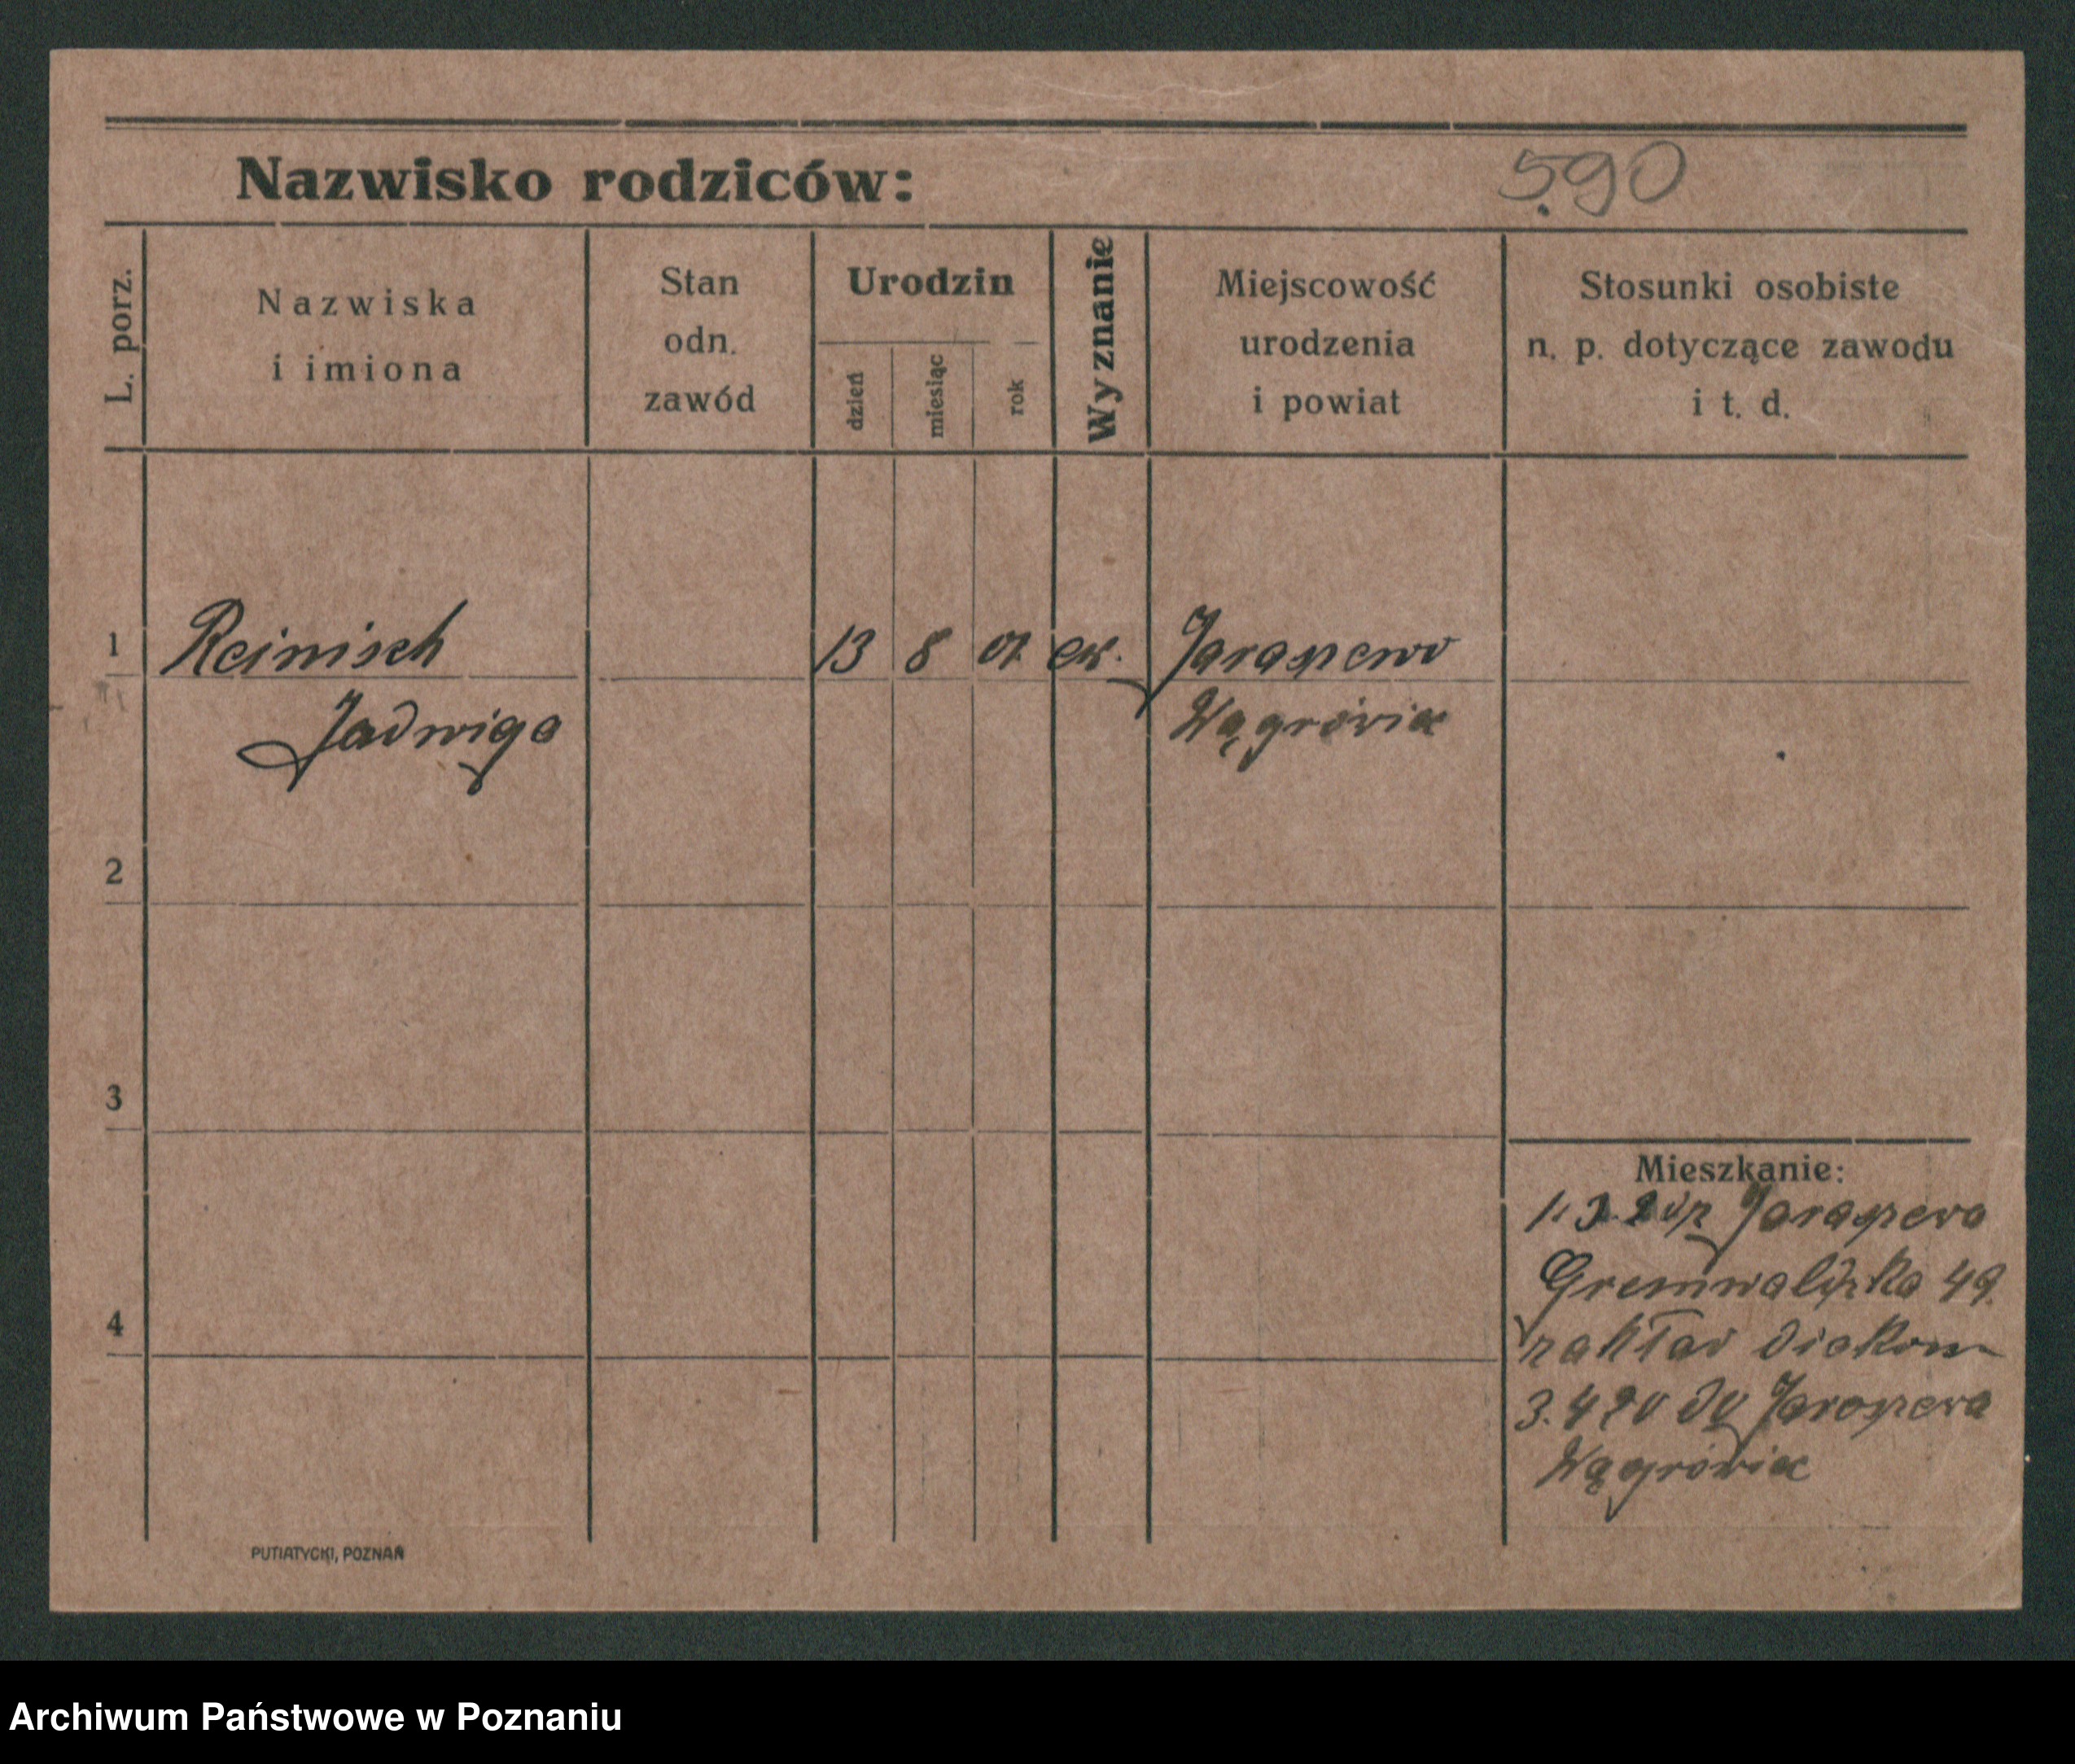 Nazwisko rodziców:
590
L. porz.
Nazwiska
i imiona
Stan
odn.
zawód
Urodzin
dzień
miesiąc
rok
Wyznanie
Miejscowość
urodzenia
i powiat
Stosunki osobiste
n. p. dotyczące zawodu
i t. d.
1
Reinisch
13
8
01
ew.
Jaraszewo
Jadwiga
Wągrówiec
2
3
4
Mieszkanie:
Jaraszewo
49
zakład diakon
3. 4 20 do Jaraszewa
Wągrówiec
PUTIATYCKI, POZNAŃ
Archiwum Państwowe w Poznaniu